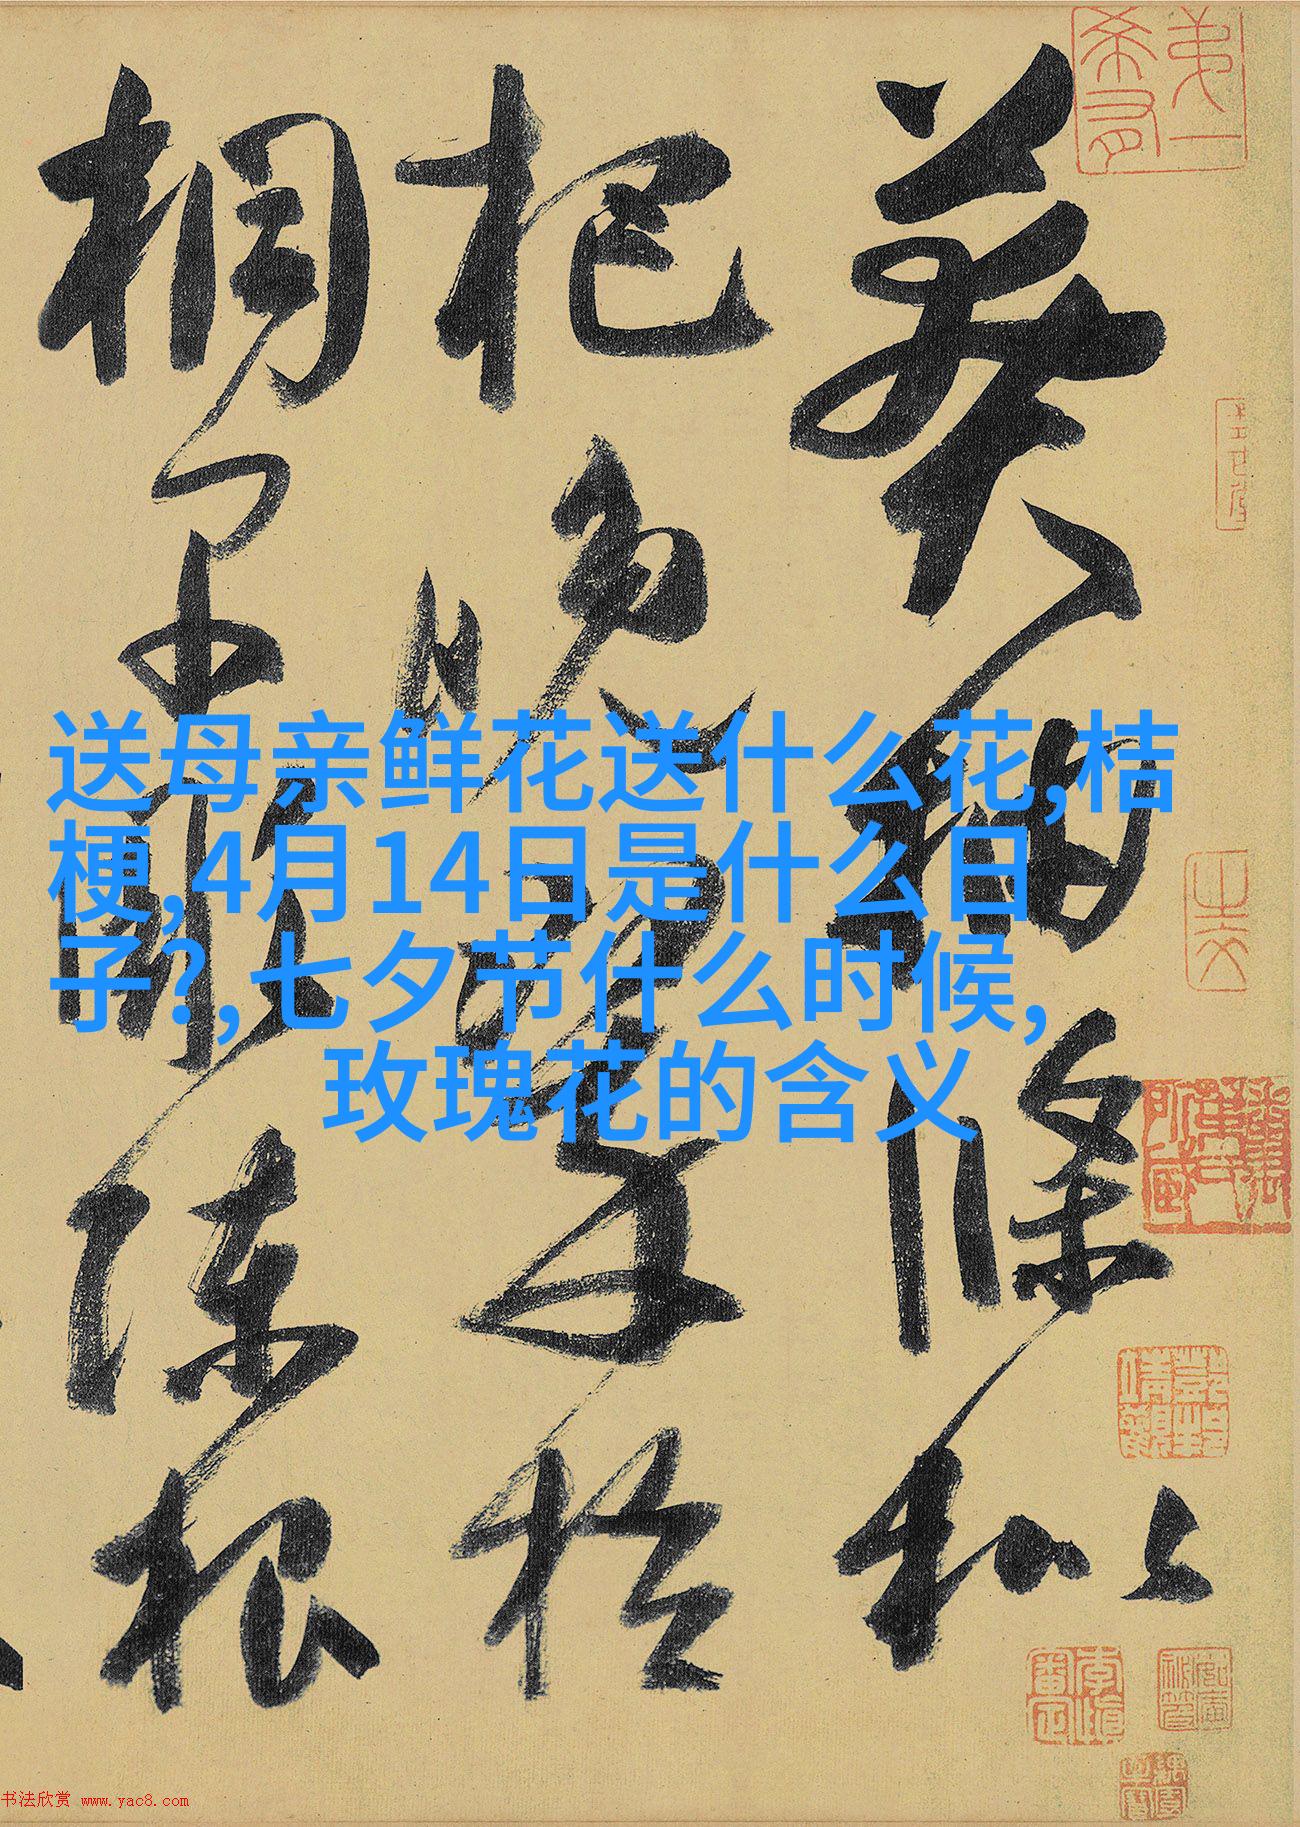 送母亲鲜花送什么花,桔
梗,4月14日是什么日
子?,七夕节什么时候,
玫瑰花的含义
莽抽條枇
杷晚翠梧
桐早陳根
书法欣赏 www.yac8.com